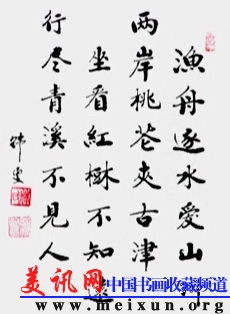 漁舟逐水愛山
兩岸桃花夾古津
坐看紅樹不知遠
行尽青溪不見人
美讯网 中国书画收藏频道
www.meixun.org